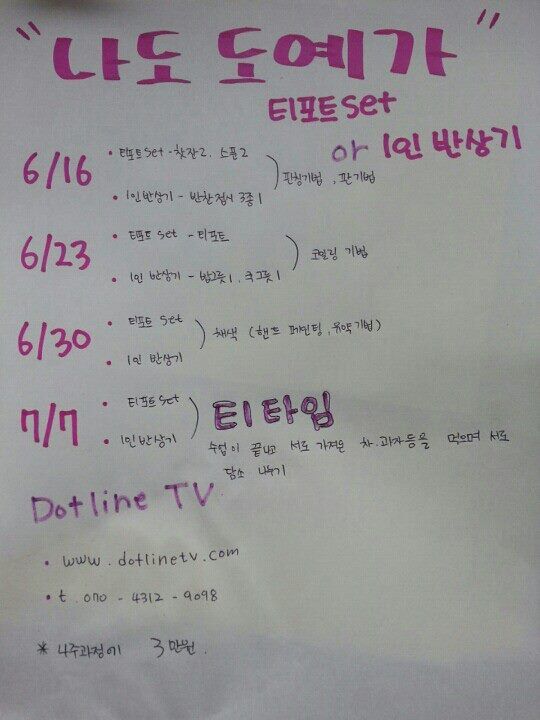 "나도 도예가"
티포트 set
or 1인 반상기
6/16
• 티포트 set - 찻잔2, 스푼2
• 1인반상기 - 반찬접시 3종1
판칭기법, 판기법
6/23
• 티포트 set - 티포트
• 1인 반상기 - 밥그릇1, 국그릇1
코일링 기법
6/30
• 티포트 set
• 1인 반상기
채색 (핸드 페인팅, 유약기법)
7/7
• 티포트 set
• 1인반상기
티타임
수업이 끝나고 서로 가져온 차.과자등을 먹으며 서로
담소 나누기
Dotline TV
• www.dotlinetv.com
• t. 070 - 4312 - 9098
* 4주과정에 3만원.